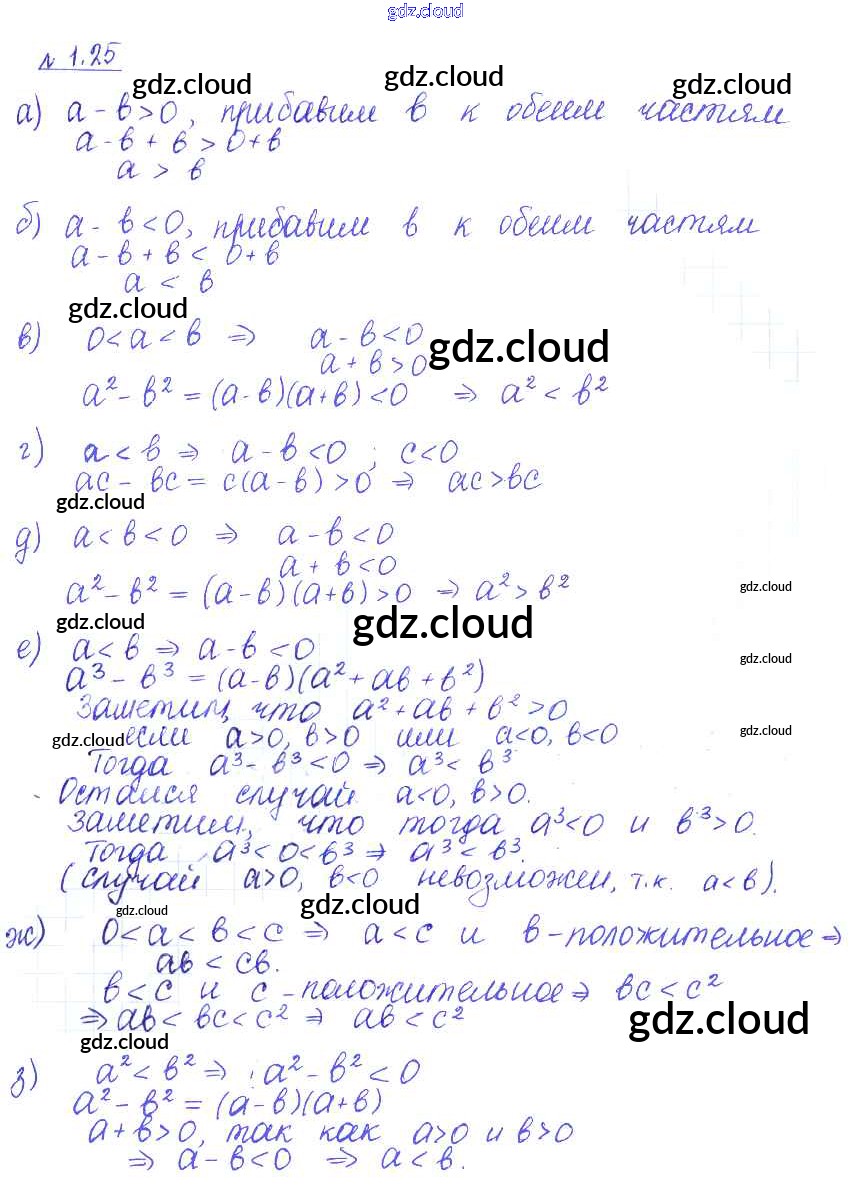 gdz.cloud
№ 1.25
gdz.cloud gdz.cloud gdz.cloud
а) a - b > 0, прибавим b к обеим частям
a - b + b > 0 + b
a > b
б) a - b < 0, прибавим b к обеим частям
a - b + b < 0 + b
a < b
gdz.cloud
в) 0 < a < b ⇒ a - b < 0
gdz.cloud
a + b > 0
a² - b² = (a - b)(a + b) < 0 ⇒ a² < b²
г) a < b ⇒ a - b < 0 ; c < 0
ac - bc = c(a - b) > 0 ⇒ ac > bc
gdz.cloud
д) a < b < 0 ⇒ a - b < 0
a + b < 0
a² - b² = (a - b)(a + b) > 0 ⇒ a² > b²
gdz.cloud
gdz.cloud gdz.cloud
е) a < b ⇒ a - b < 0
gdz.cloud
a³ - b³ = (a - b)(a² + ab + b²)
Заметим, что a² + ab + b² > 0
gdz.cloud если a > 0, b > 0 или a < 0, b < 0 gdz.cloud
Тогда a³ - b³ < 0 ⇒ a³ < b³
Остался случай a < 0, b > 0.
Заметим, что тогда a³ < 0 и b³ > 0.
Тогда a³ < 0 < b³ ⇒ a³ < b³.
(случай a > 0, b < 0 невозможен, т.к. a < b).
gdz.cloud gdz.cloud
ж) 0 < a < b < c ⇒ a < c и b - положительное ⇒
ab < cb.
b < c и c - положительное ⇒ bc < c²
⇒ ab < bc < c² ⇒ ab < c²
gdz.cloud
gdz.cloud
з) a² < b² ⇒ a² - b² < 0
a² - b² = (a - b)(a + b)
a + b > 0, так как a > 0 и b > 0
⇒ a - b < 0 ⇒ a < b.